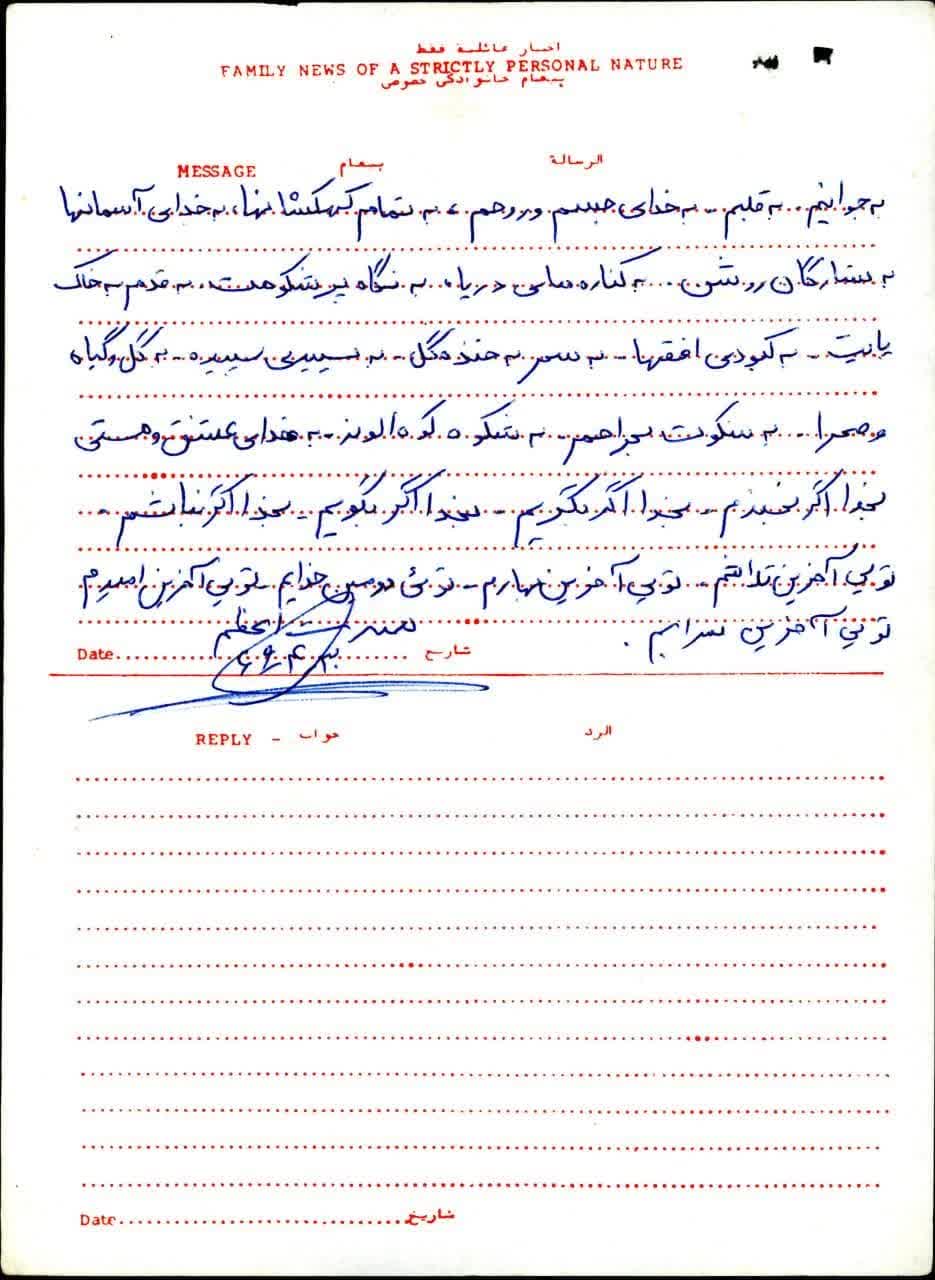 اخبار عائلية فقط
FAMILY NEWS OF A STRICTLY PERSONAL NATURE
پیغام خانوادگی خصوصی
MESSAGE پیغام الرسالة
به جوانیم .. به قلبم - به خدای جسم و روحم ، به تمام کهکشانها، به خدایی آسمانها
به ستارگان روشن .. به کناره های دریا، به نگاه پر شکوهت، به قدم به خاک
پایت - به کبودی افقها - به سر به خنده گل - به سپیدی سپیده - به گل و گیاه
و صحرا - به سکوت - به شکوه کوه الوند - به خدای عشق و هستی
بخدا اگر بخندم - بخدا اگر بگریم - بخدا اگر بگویم - بخدا اگر نباشم -
تویی آخرین - تویی آخرین بهارم - توئی دومین خدایم - تویی آخرین امیدم
تویی آخرین سرابم .
Date تاریخ
REPLY - جواب الرد
Date تاریخ